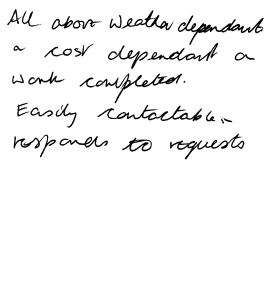 All above weather dependant
a cost dependant a
work completed.
Easily contactable,
responds to requests